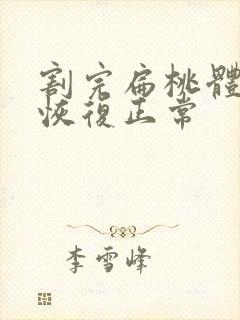 割完扁桃體
恢復正常
李雪峰